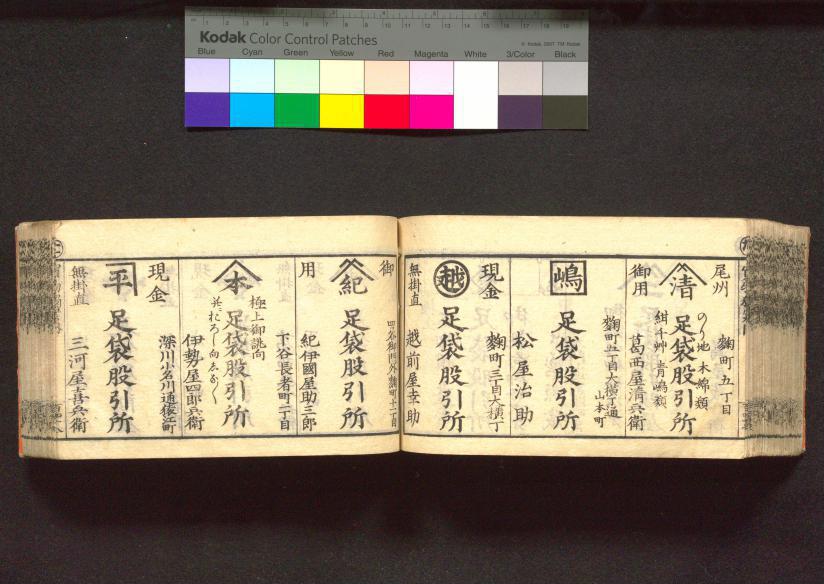 Kodak Color Control Patches
© Kodak, 2007 TM: Kodak
Blue Cyan Green Yellow Red Magenta White 3/Color Black
尾州
麹町五丁目
清
足袋股引所
のり地木綿類
紺千艸青嶋類
御用
葛西屋清兵衛
麹町五丁目大横丁通
山本町
嶋
足袋股引所
松屋治助
現金
麹町三丁目大横丁
越
足袋股引所
無掛直
越前屋幸助
御
四谷御門外麹町十一丁目
紀
足袋股引所
用
紀伊國屋助三郎
下谷長者町二丁目
極上御誂向
本
足袋股引所
伊勢屋四郎兵衛
現金
深川小名川通猿江町
平
足袋股引所
無掛直
三河屋喜兵衛